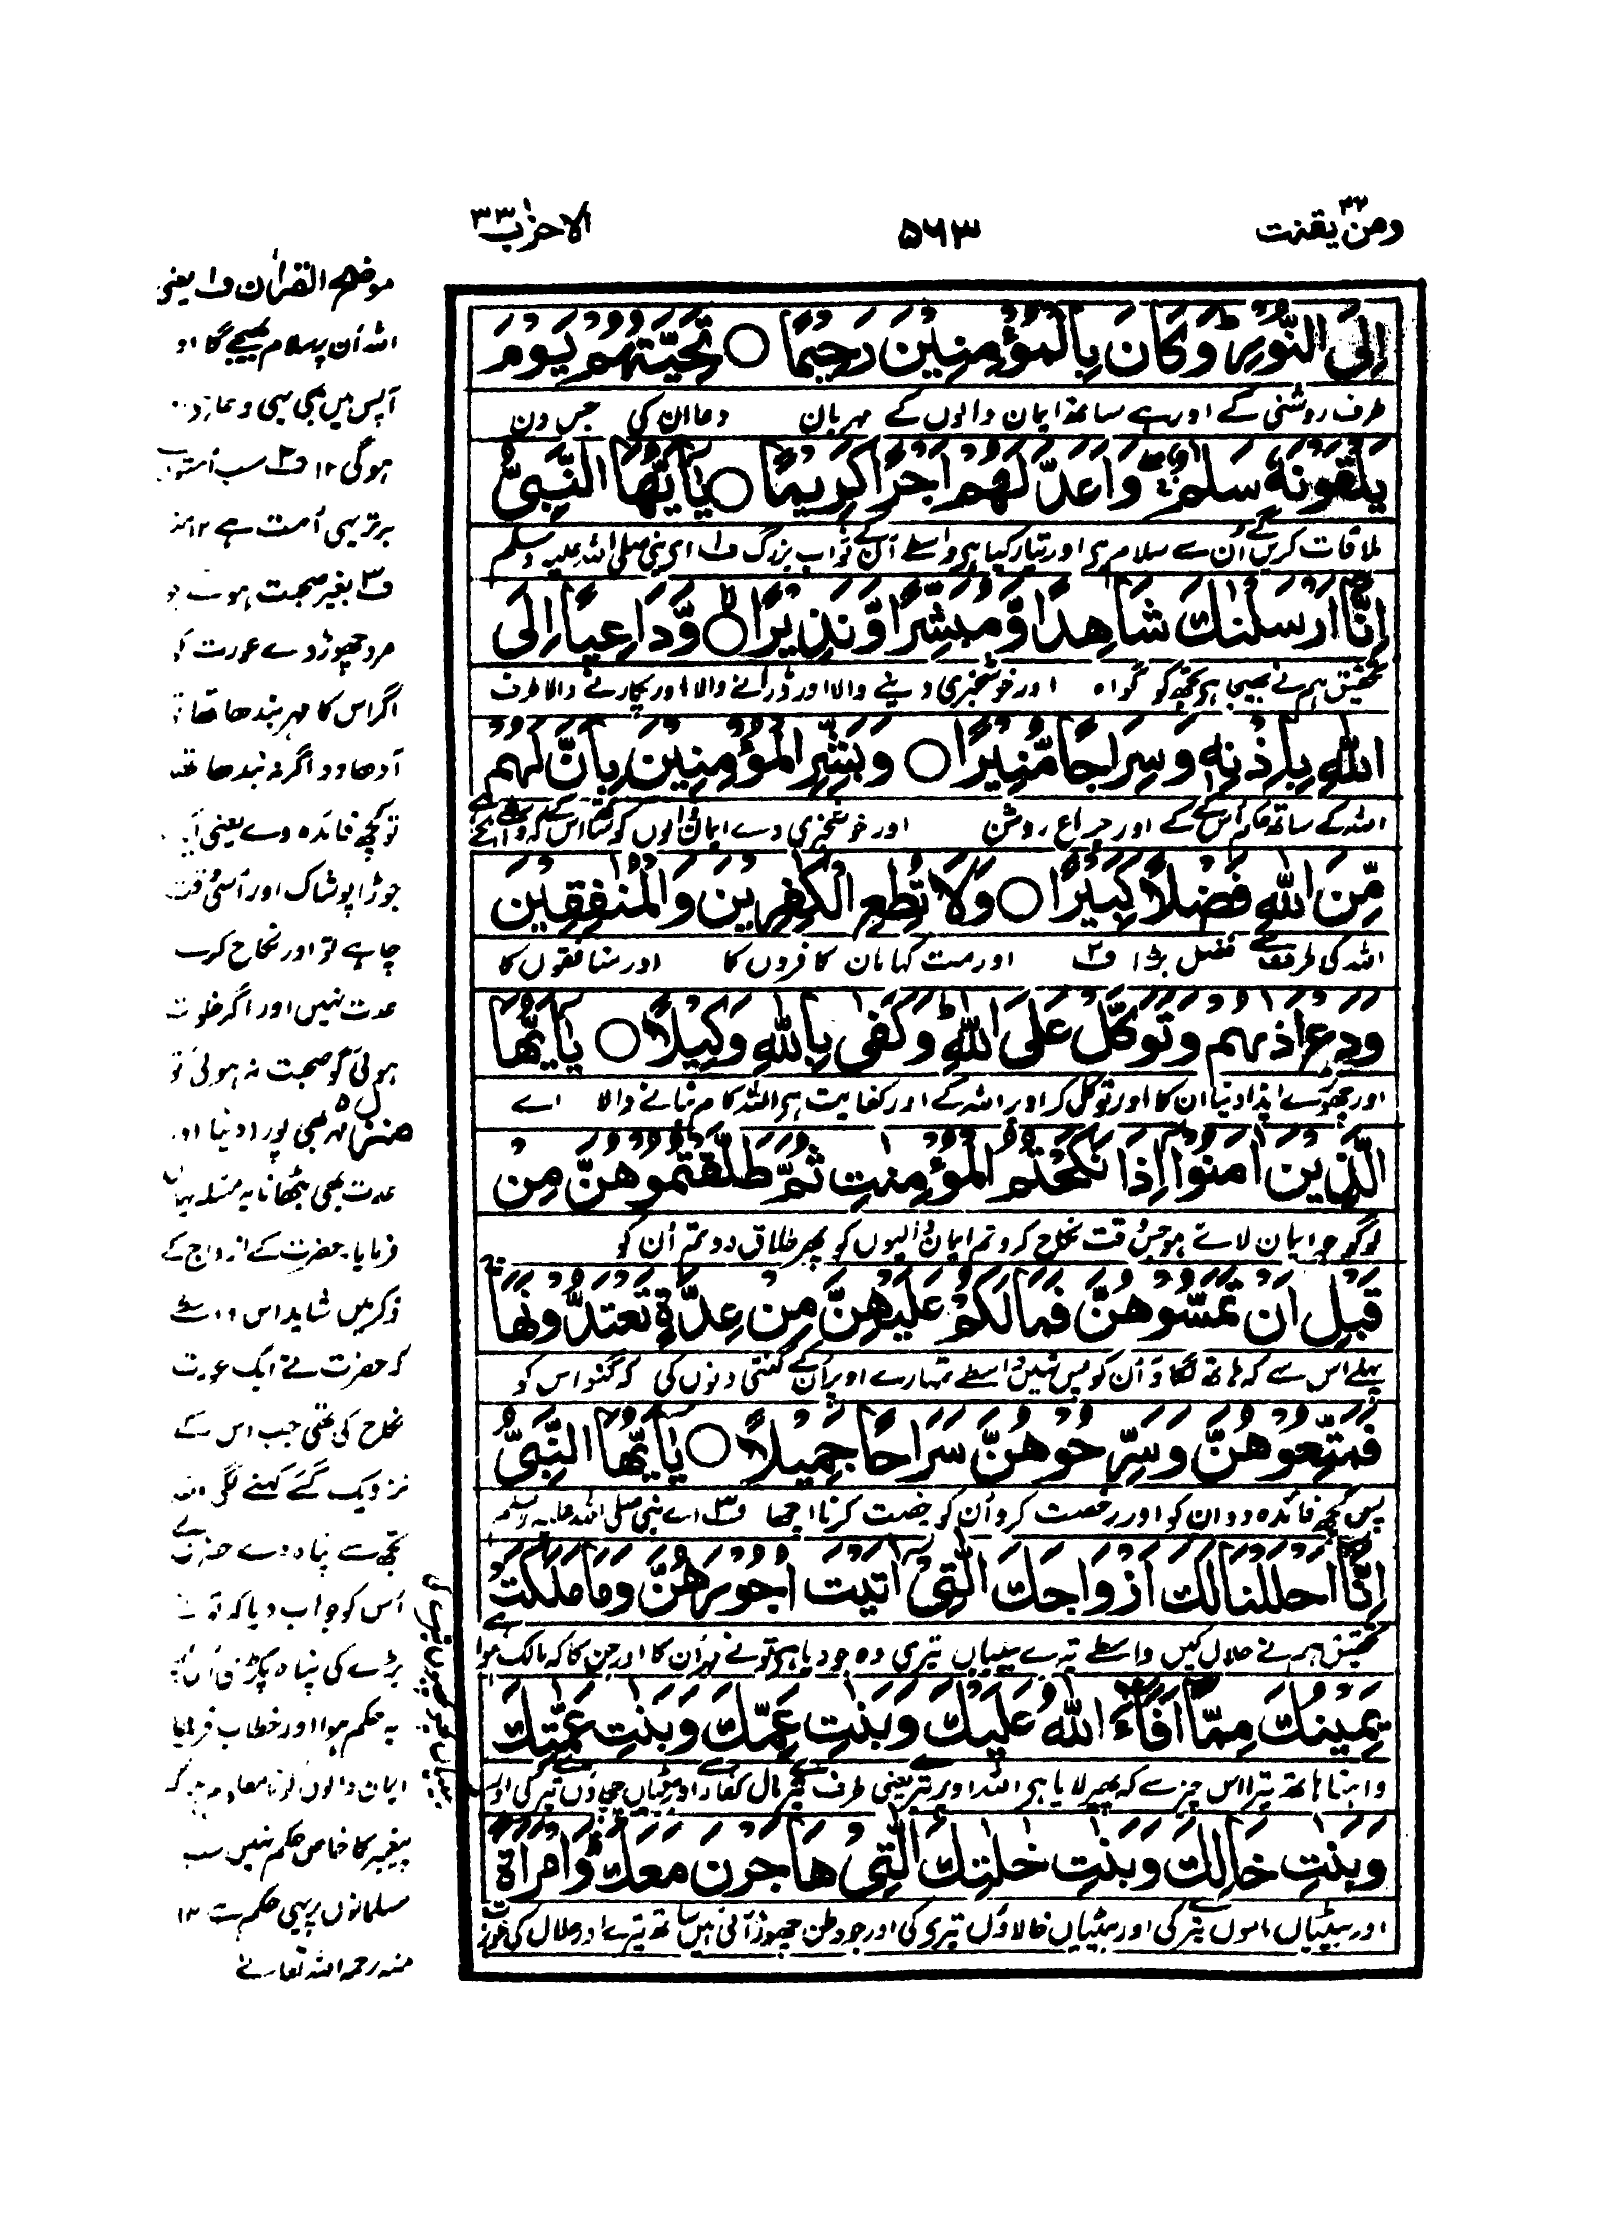 ومن یقنت ۲۲
۵۶۳
الاحزٰب ۳۳
اِلَى النُّوْرِؕ وَكَانَ بِالْمُؤْمِنِيْنَ رَحِيْمًا ○ تَحِيَّتُهُمْ يَوْمَ
طرف روشنی کے اور ہے ساتھ ایمان والوں کے مہربان دعا ان کی جس دن
يَلْقَوْنَهٗ سَلٰمٌ ۖۚ وَاَعَدَّ لَهُمْ اَجْرًا كَرِيْمًا ○ يٰۤاَيُّهَا النَّبِيُّ
ملاقات کریں گے اُس سے سلام ہی اور تیار کیا ہی واسطے اُن کے ثواب بزرگ ف۱ ای نبی صلی اللہ علیہ وسلم
اِنَّاۤ اَرْسَلْنٰكَ شَاهِدًا وَّمُبَشِّرًا وَّنَذِيْرًاۙ ○ وَّدَاعِيًا اِلَى
تحقیق ہم نے بھیجا ہی تجھ کو گواہ اور خوشخبری دینے والا اور ڈرانے والا اور پکارنے والا طرف
اللّٰهِ بِاِذْنِهٖ وَسِرَاجًا مُّنِيْرًا ○ وَبَشِّرِ الْمُؤْمِنِيْنَ بِاَنَّ لَهُمْ
اللہ کے ساتھ حکم اُس کے کے اور چراغ روشن اور خوشخبری دے ایمان والوں کو ساتھ اس کے کہ واسطے انکے
مِّنَ اللّٰهِ فَضْلًا كَبِيْرًا ○ وَلَا تُطِعِ الْكٰفِرِيْنَ وَالْمُنٰفِقِيْنَ
اللہ کی طرف سے فضل بڑا ف۲ اور مت کہا مان کافروں کا اور منافقوں کا
وَدَعْ اَذٰىهُمْ وَتَوَكَّلْ عَلَى اللّٰهِؕ وَكَفٰى بِاللّٰهِ وَكِيْلًا ○ يٰۤاَيُّهَا
اور چھوڑ دے ایذا دینا ان کا اور توکل کر اوپر اللہ کے اور کفایت ہی اللہ کام بنانے والا اے
الَّذِيْنَ اٰمَنُوْۤا اِذَا نَكَحْتُمُ الْمُؤْمِنٰتِ ثُمَّ طَلَّقْتُمُوْهُنَّ مِنْ
لوگو جو ایمان لائے ہو جس وقت نکاح کرو تم ایمان والیوں کو پھر طلاق دو تم اُن کو
قَبْلِ اَنْ تَمَسُّوْهُنَّ فَمَا لَكُمْ عَلَيْهِنَّ مِنْ عِدَّةٍ تَعْتَدُّوْنَهَاۚ
پہلے اس سے کہ ہاتھ لگاؤ اُن کو پس نہیں واسطے تمہارے اوپر اُن کے گنتی دنوں کی کہ گنو اس کو
فَمَتِّعُوْهُنَّ وَسَرِّحُوْهُنَّ سَرَاحًا جَمِيْلًا ○ يٰۤاَيُّهَا النَّبِيُّ
پس کچھ فائدہ دو ان کو اور رخصت کرو اُن کو رخصت کرنا اچھا ف۳ اے نبی صلی اللہ علیہ وسلم
اِنَّاۤ اَحْلَلْنَا لَكَ اَزْوَاجَكَ الّٰتِيْۤ اٰتَيْتَ اُجُوْرَهُنَّ وَمَا مَلَكَتْ
تحقیق ہم نے حلال کیں واسطے تیرے بیبیاں تیری وہ جو دیا ہی تو نے مہر اُن کا اور جن کا کہ مالک ہوا
يَمِيْنُكَ مِمَّاۤ اَفَآءَ اللّٰهُ عَلَيْكَ وَبَنٰتِ عَمِّكَ وَبَنٰتِ عَمّٰتِكَ
داہنا ہاتھ تیرا اس چیز سے کہ پھیر لایا ہی اللہ اوپر تیرے یعنی طرف تیرے مال کفار اور بیٹیاں چچاؤں تیرے کی
وَبَنٰتِ خَالِكَ وَبَنٰتِ خٰلٰتِكَ الّٰتِيْ هَاجَرْنَ مَعَكَؗ وَامْرَاَةً
اور بیٹیاں ماموں تیرے کی اور بیٹیاں خالاؤں تیری کی اور جو وطن چھوڑ آئی ہیں ساتھ تیرے اور حلال کی عورت
موضح القراٰن ف۱ یعنی
اللہ اُن پر سلام بھیجے گا او
آپس میں بھی یہی
ہوگی ۱۲ ف۲ سب اُمتوں
برتر یہی اُمت ہے ۱۲ منہ
ف۳ بغیر صحبت ہوئے جو
مرد چھوڑ دے عورت کو
اگر اس کا مہر بندھا تھا تو
آدھا دو اگر نہ بندھا تھا
تو کچھ فائدہ دے یعنی
جوڑا پوشاک اور اُسی وقت
چاہے تو اور نکاح کرے
عدت نہیں اور اگر خلوت
ہوئی گو صحبت نہ ہوئی تو
مہر بھی پورا دینا اور
عدت بھی بٹھانا یہ مسئلہ یہاں
فرمایا۔ حضرت کے ازواج کے
ذکر میں شاید اس واسطے
کہ حضرت نے ایک عورت
نکاح کی تھی جب اس کے
نزدیک گئے کہنے لگی اللہ
تجھ سے پناہ دے حضرت نے
اُس کو جواب دیا کہ تو نے
بڑے کی پناہ پکڑی
یہ حکم ہوا اور خطاب فرمایا
ایمان والوں کو تا معلوم ہو کہ
پیغمبر کا خاص حکم نہیں سب
مسلمانوں پر یہی حکم ہے ۱۲
منہ رحمہ اللہ تعالےٰ